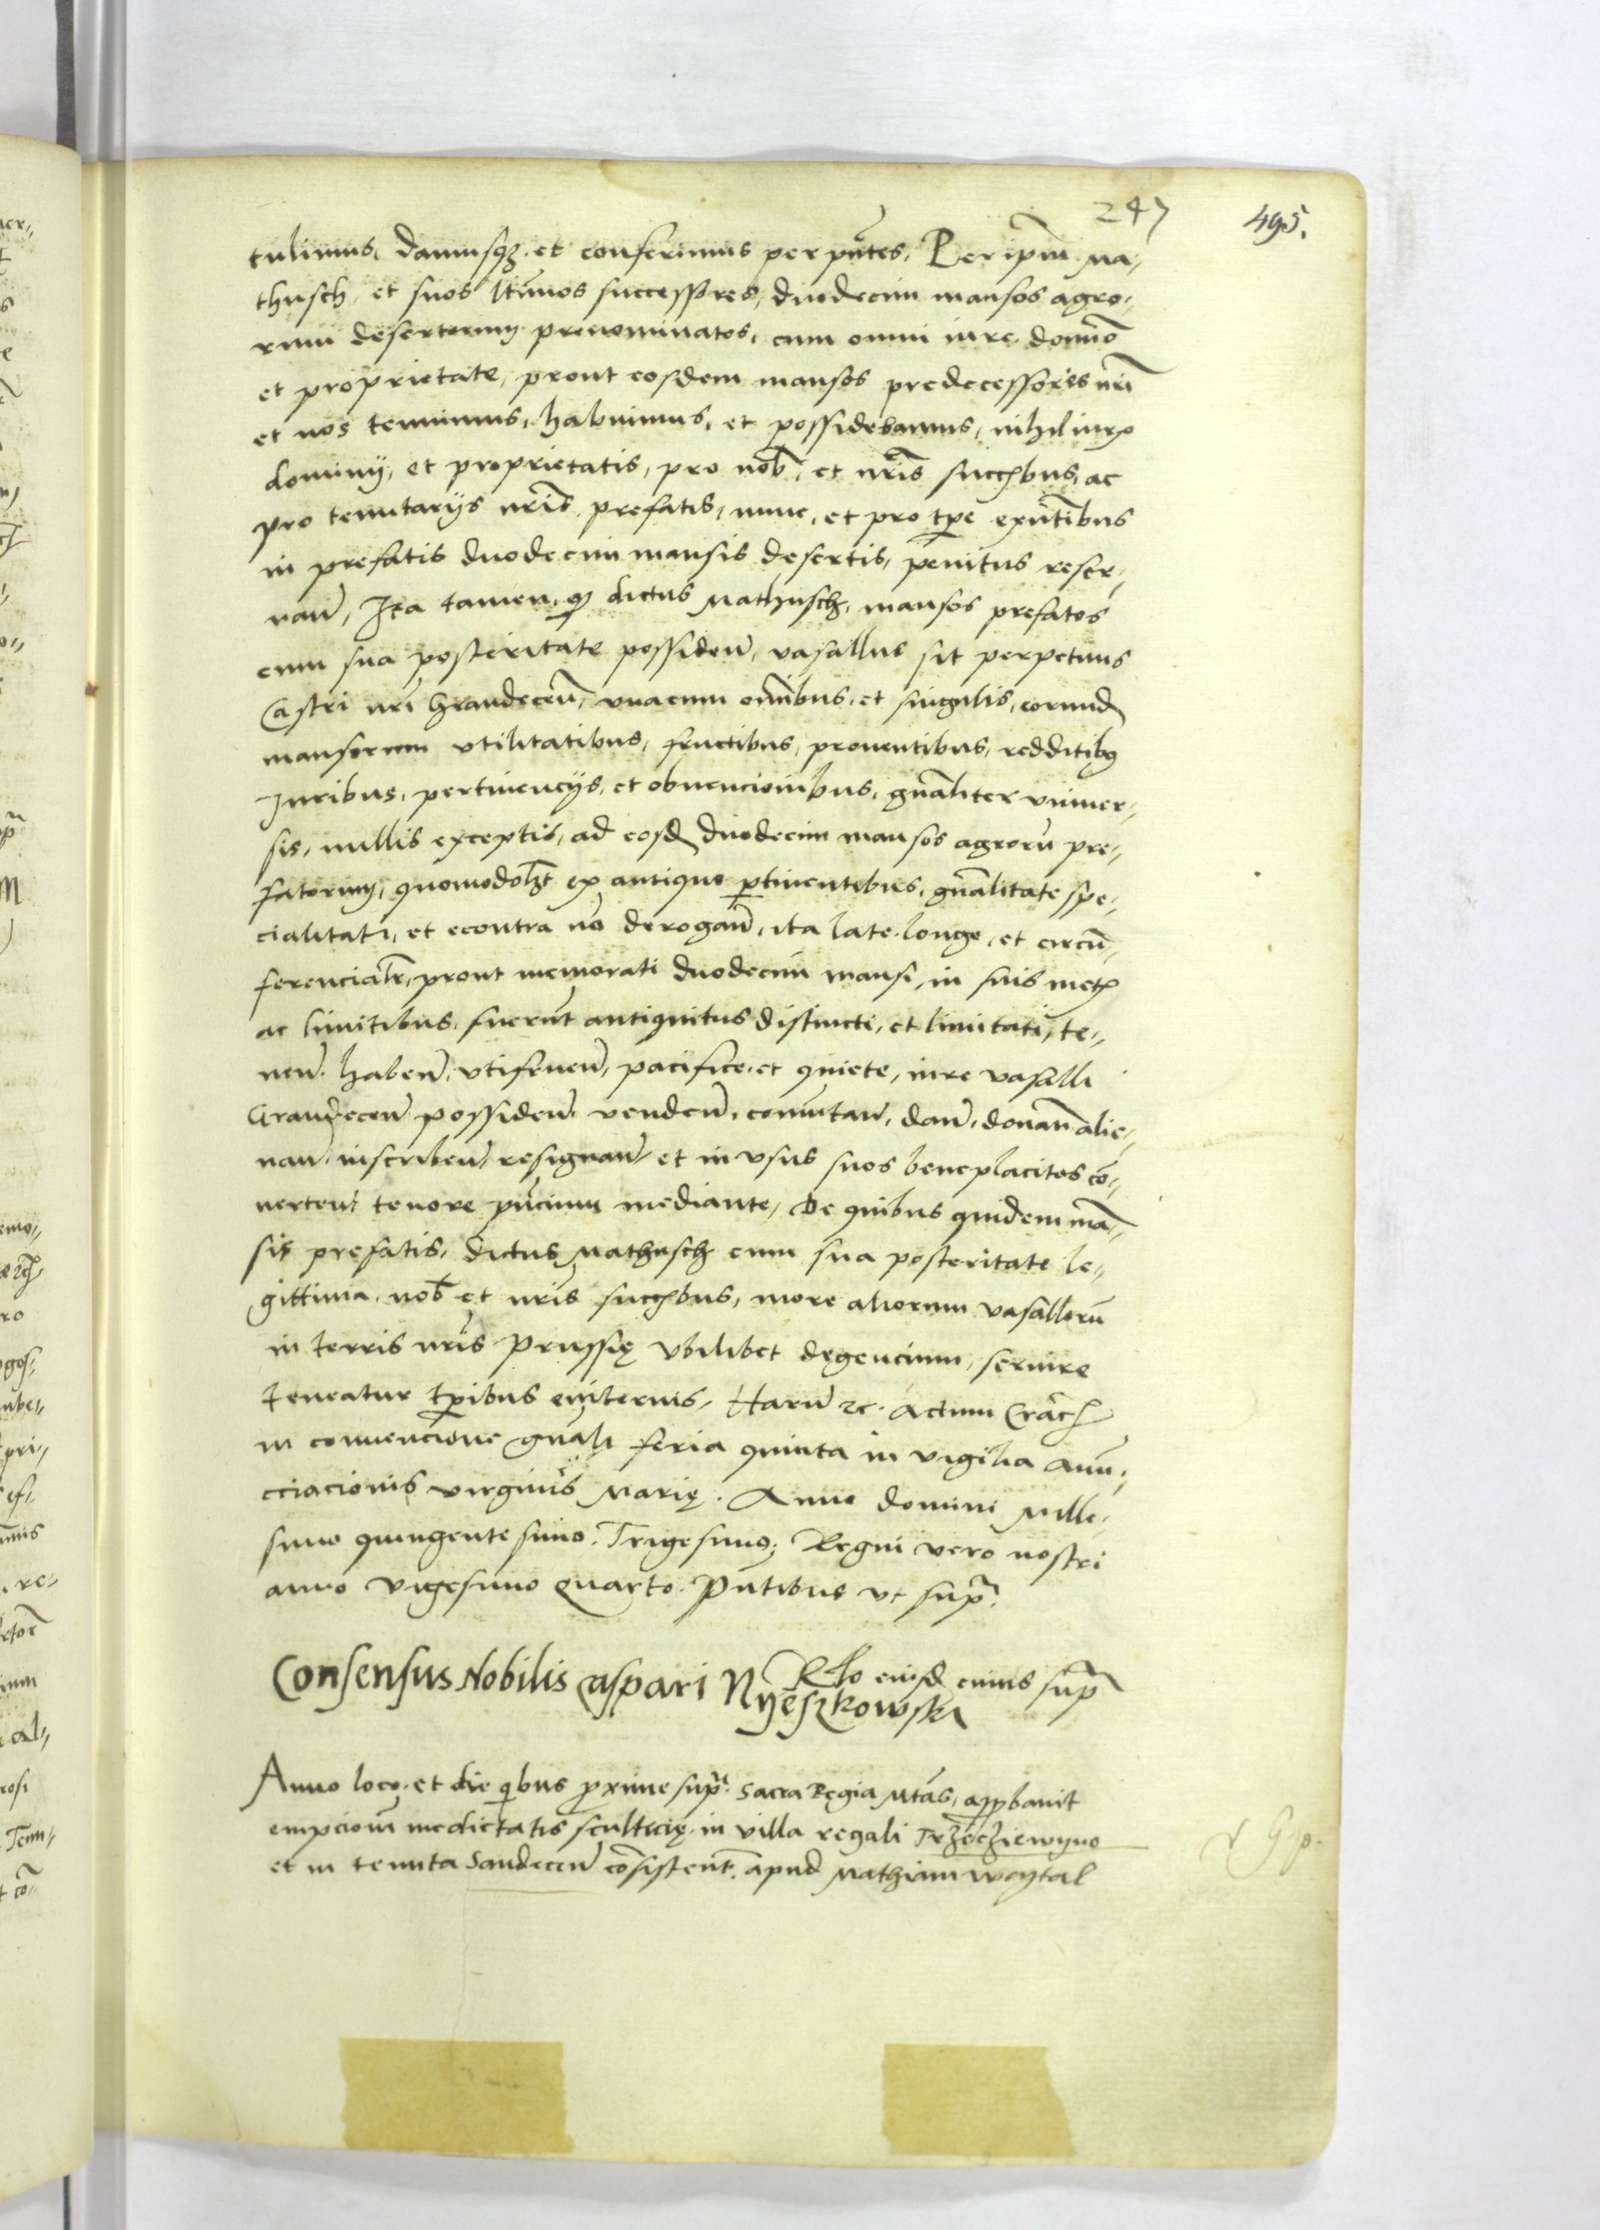 247
495.
tulimus, damusq3 et conferimus per pñtes, Per ip̃m Ma-
thusch, et suos ltĩmos successores, duodecim mansos agro-
rum desertorum prenominatos, cum omni iure, domĩo
et proprietate, prout eosdem mansos predecessores nr̃i
et nos tenuimus, habuimus, et possidebamus, nihil iurꝭ
dominij, et proprietatis, pro nob̃, et nr̃is succ̃bus, ac
pro tenutarijs nr̃is, prefatis, nunc, et pro tp̃e exñtibus
in prefatis duodecim mansis desertis, penitus reser-
uan̄, Ita tamen, q̃ dictus Mathusch, mansos prefatos
cum sua posteritate possiden̄, vasallus sit perpetuus
Castri nr̃i Graudecen̄, vnacum om̃ibus, et singulis, eorund̃
mansorum vtilitatibus, fructibus, prouentibus, redditibꝫ
Iuribus, pertinencijs, et obuencionibus, gñaliter vniuer-
sis, nullis exceptis, ad eosd̃ duodecim mansos agrorũ pre-
fatorum, quomodolꝫt ex antiquo ꝑtinentibus, gñalitate spe-
cialitati, et econtra nõ derogan̄, ita late, longe, et circũ-
ferencialr̃, prout memorati duodecim mansi, in suis metꝭ
ac limitibus, fuerũt antiquitus distincti, et limitati, te-
nen̄, haben̄, vtifruen̄, pacifice et quiete, iure vasalli
Graudecen̄ possiden̄ venden̄, comutan̄, dan̄, donan̄ alie-
nan̄ inscriben̄ resignan̄ et in vsus suos beneplacitos cõ-
uerten̄ tenore pñcium mediante, De quibus quidem mã-
sis prefatis, dictus Mathusch cum sua posteritate le-
gittima, nob̃ et nr̃is succ̃bus, more aliorum vasallorũ
in terris nr̃is Prussię vbilibet degencium, seruire
teneatur tp̃ibus euiternis, Harũ ꝛc. Actum Crac̃
in conuencione gñali feria quinta in vigilia Anũ-
cciacionis virginis Marię. Anno domini Mille-
simo quingentesimo Trigesimo, Regni vero nostri
anno vigesimo quarto. Pñtibus vt supr̃.
Consensus Nobilis Caspari Nyeszkowski
Rl̃o eiusd̃ cuius supr̃
Anno loco, et die q̃bus proxime supr̃. Sacra Regia Mtas, approbauit
empcionẽ medietatis scultecię, in villa regali Trzecziewyno
et in tenuta Sandecen̄ cõsistent̃. apud Mathiam Woytal